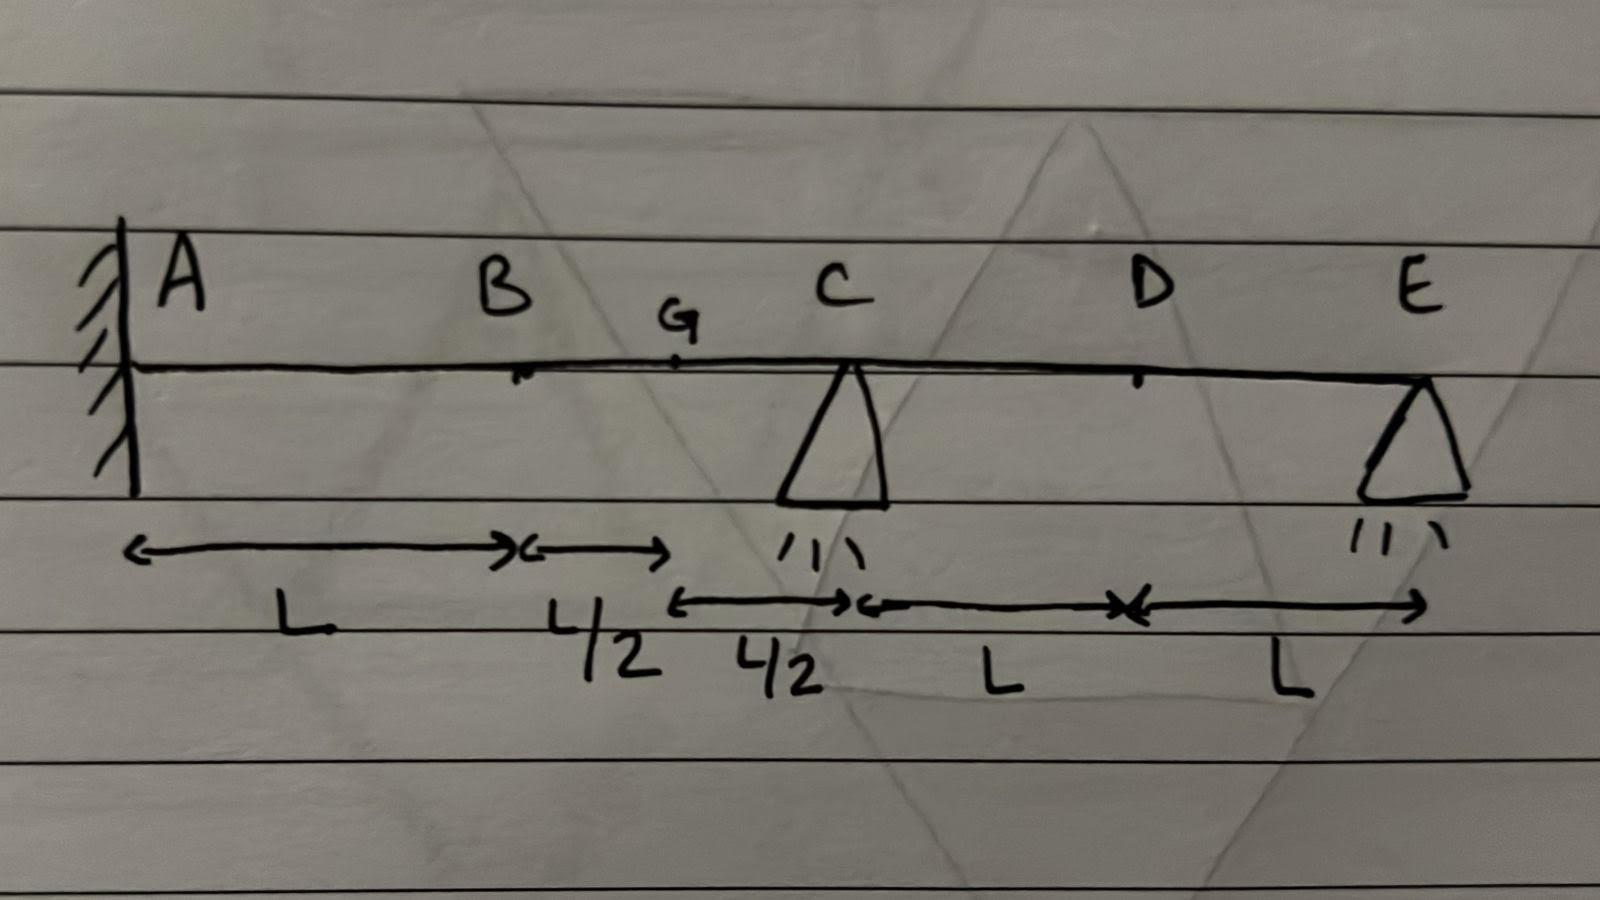 A B G C D E
L L/2 L/2 L L